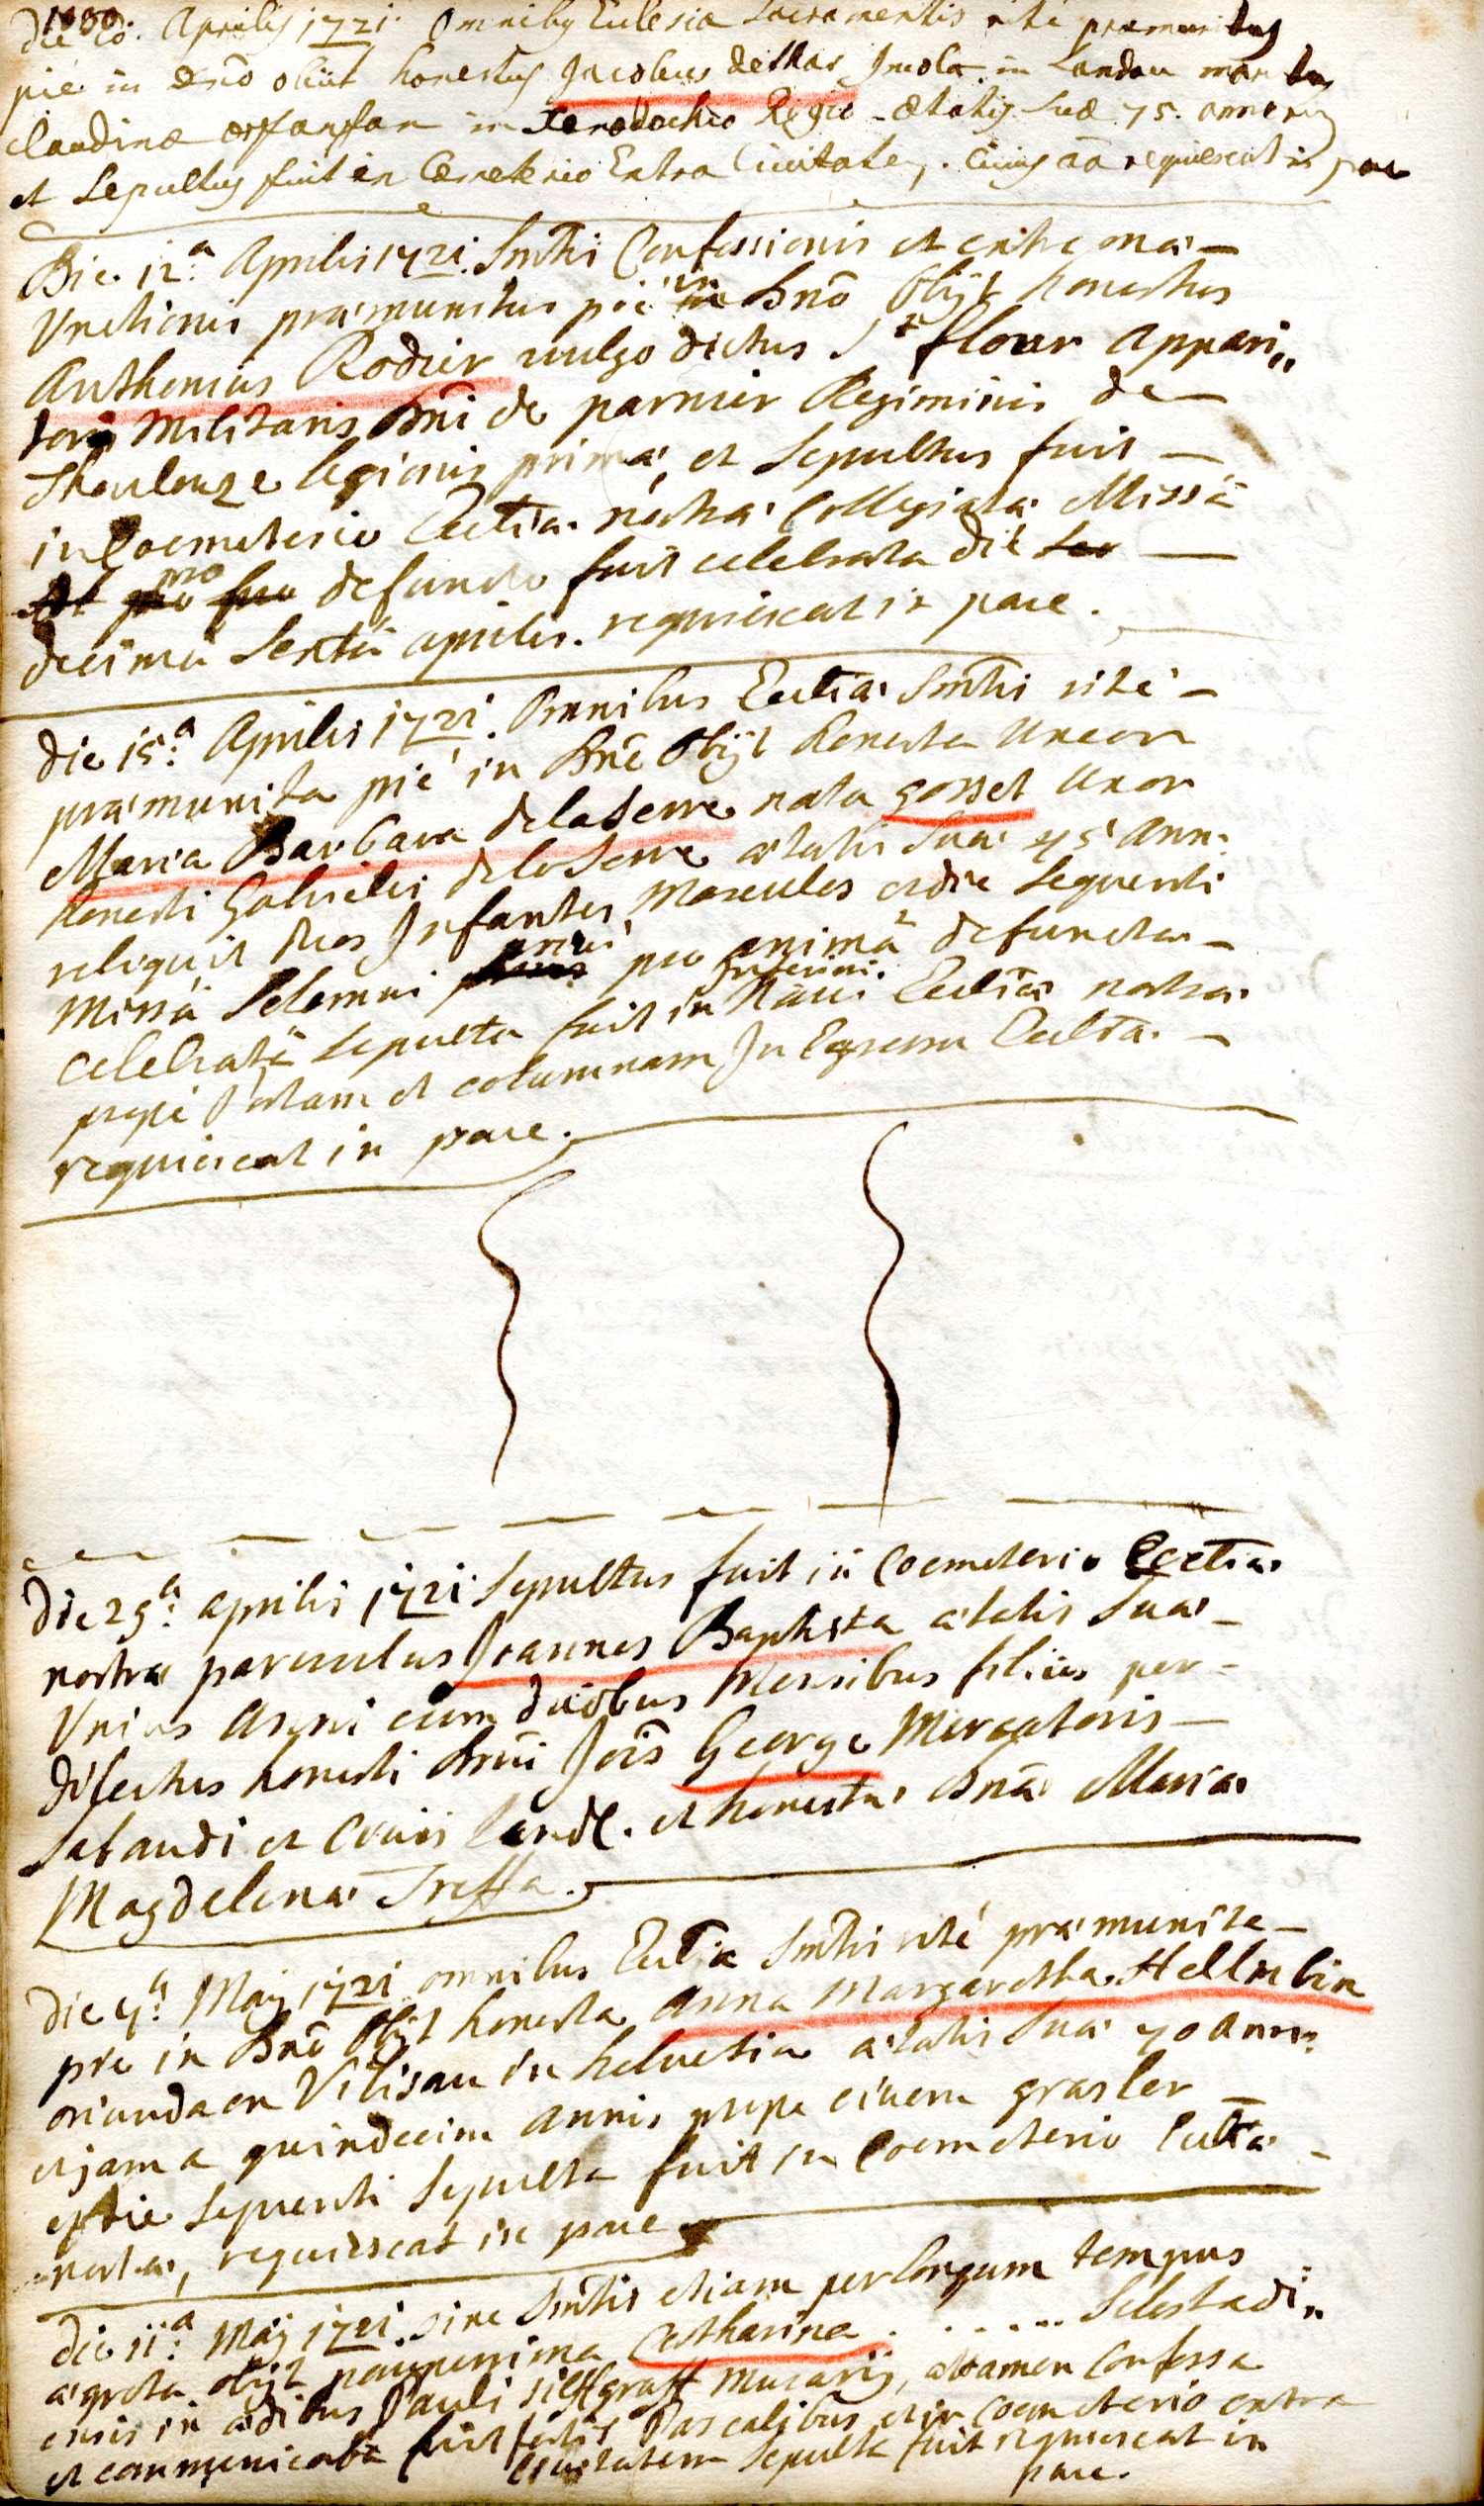 die 10. Aprilis 1721. Omnibus Eclesia Sacramentis rité premunitus
pié in dno obiit honestus Jacobus dethas Incola in Landau maritus
Claudinæ in Xenodochio Regio ætatis suæ 75. annorum
et Sepultus fuit in Cemeterio Extra Civitatem. Cuius aa requiescat in pace
Die 12.ª Aprilis 1721. Smtis Confessionis et extrema. –
Unctionis præmunitus pie in Dno Obijt honestus
Anthonius Rodier vulgo dictus St flour Appari„
toris Militaris Dni de parnier Regiminis de –
Thoulouze legionis prima, et Sepultus fuit –
in Coemeterio Eccliæ nostra Collegiata. Missa
pro defuncto fuit celebrata die
decima Sexta aprilis. requiescat in pace.
Die 15.ª Aprilis 1721. Omnibus Eccliæ Smtis rité –
præmunita pié in Dno Obijt honesta Uxor
Maria Barbara delaserre nata gosset Uxor
honesti Gabrielis delaserre ætatis Suæ 45 Ann.
reliquit duos Infantes Masculos et die Sequenti
Missa Solemni prius pro anima defuncta –
celebrata Sepulta fuit in Navi Inferiori Eccliæ nostra
prope Portam et columnam In Egressu Eccliæ. –
requiescat in pace.
Die 29.ª aprilis 1721 Sepultus fuit in Coemeterio Eccliæ
nostræ parvulus Joannes Baptista ætatis Suæ –
Unius Anni cum duobus Mensibus filius per-
dilectus honesti Dni Jois George Mercatoris –
Sabaudi et Civis Land. et honesta Dna Maria
Magdelena Treffa.
Die 4.ª Maij 1721 omnibus Eccliæ Smtis rité præmunita –
pie in Dno Obijt honesta Anna Margaretha Hellmbin
oriunda ex Vilisau in helvetia ætatis Suæ 40 Ann:
et jam a quindecim annis prope civem grasler –
et die Sequenti Sepulta fuit in Coemeterio Eccliæ –
nostra, requiescat in pace
Die 11.ª Maij 1721. sine Smtis etiam per longum tempus
ægrota obijt pauperrima Catharina . . . . . . Selestadi„
ensis in ædibus Pauli silstgraff Murarij, attamen Confessa
et communicata fuit festis Pascalibus et in Coemeterio extra
Civitatem Sepulta fuit requiescat in
pace.